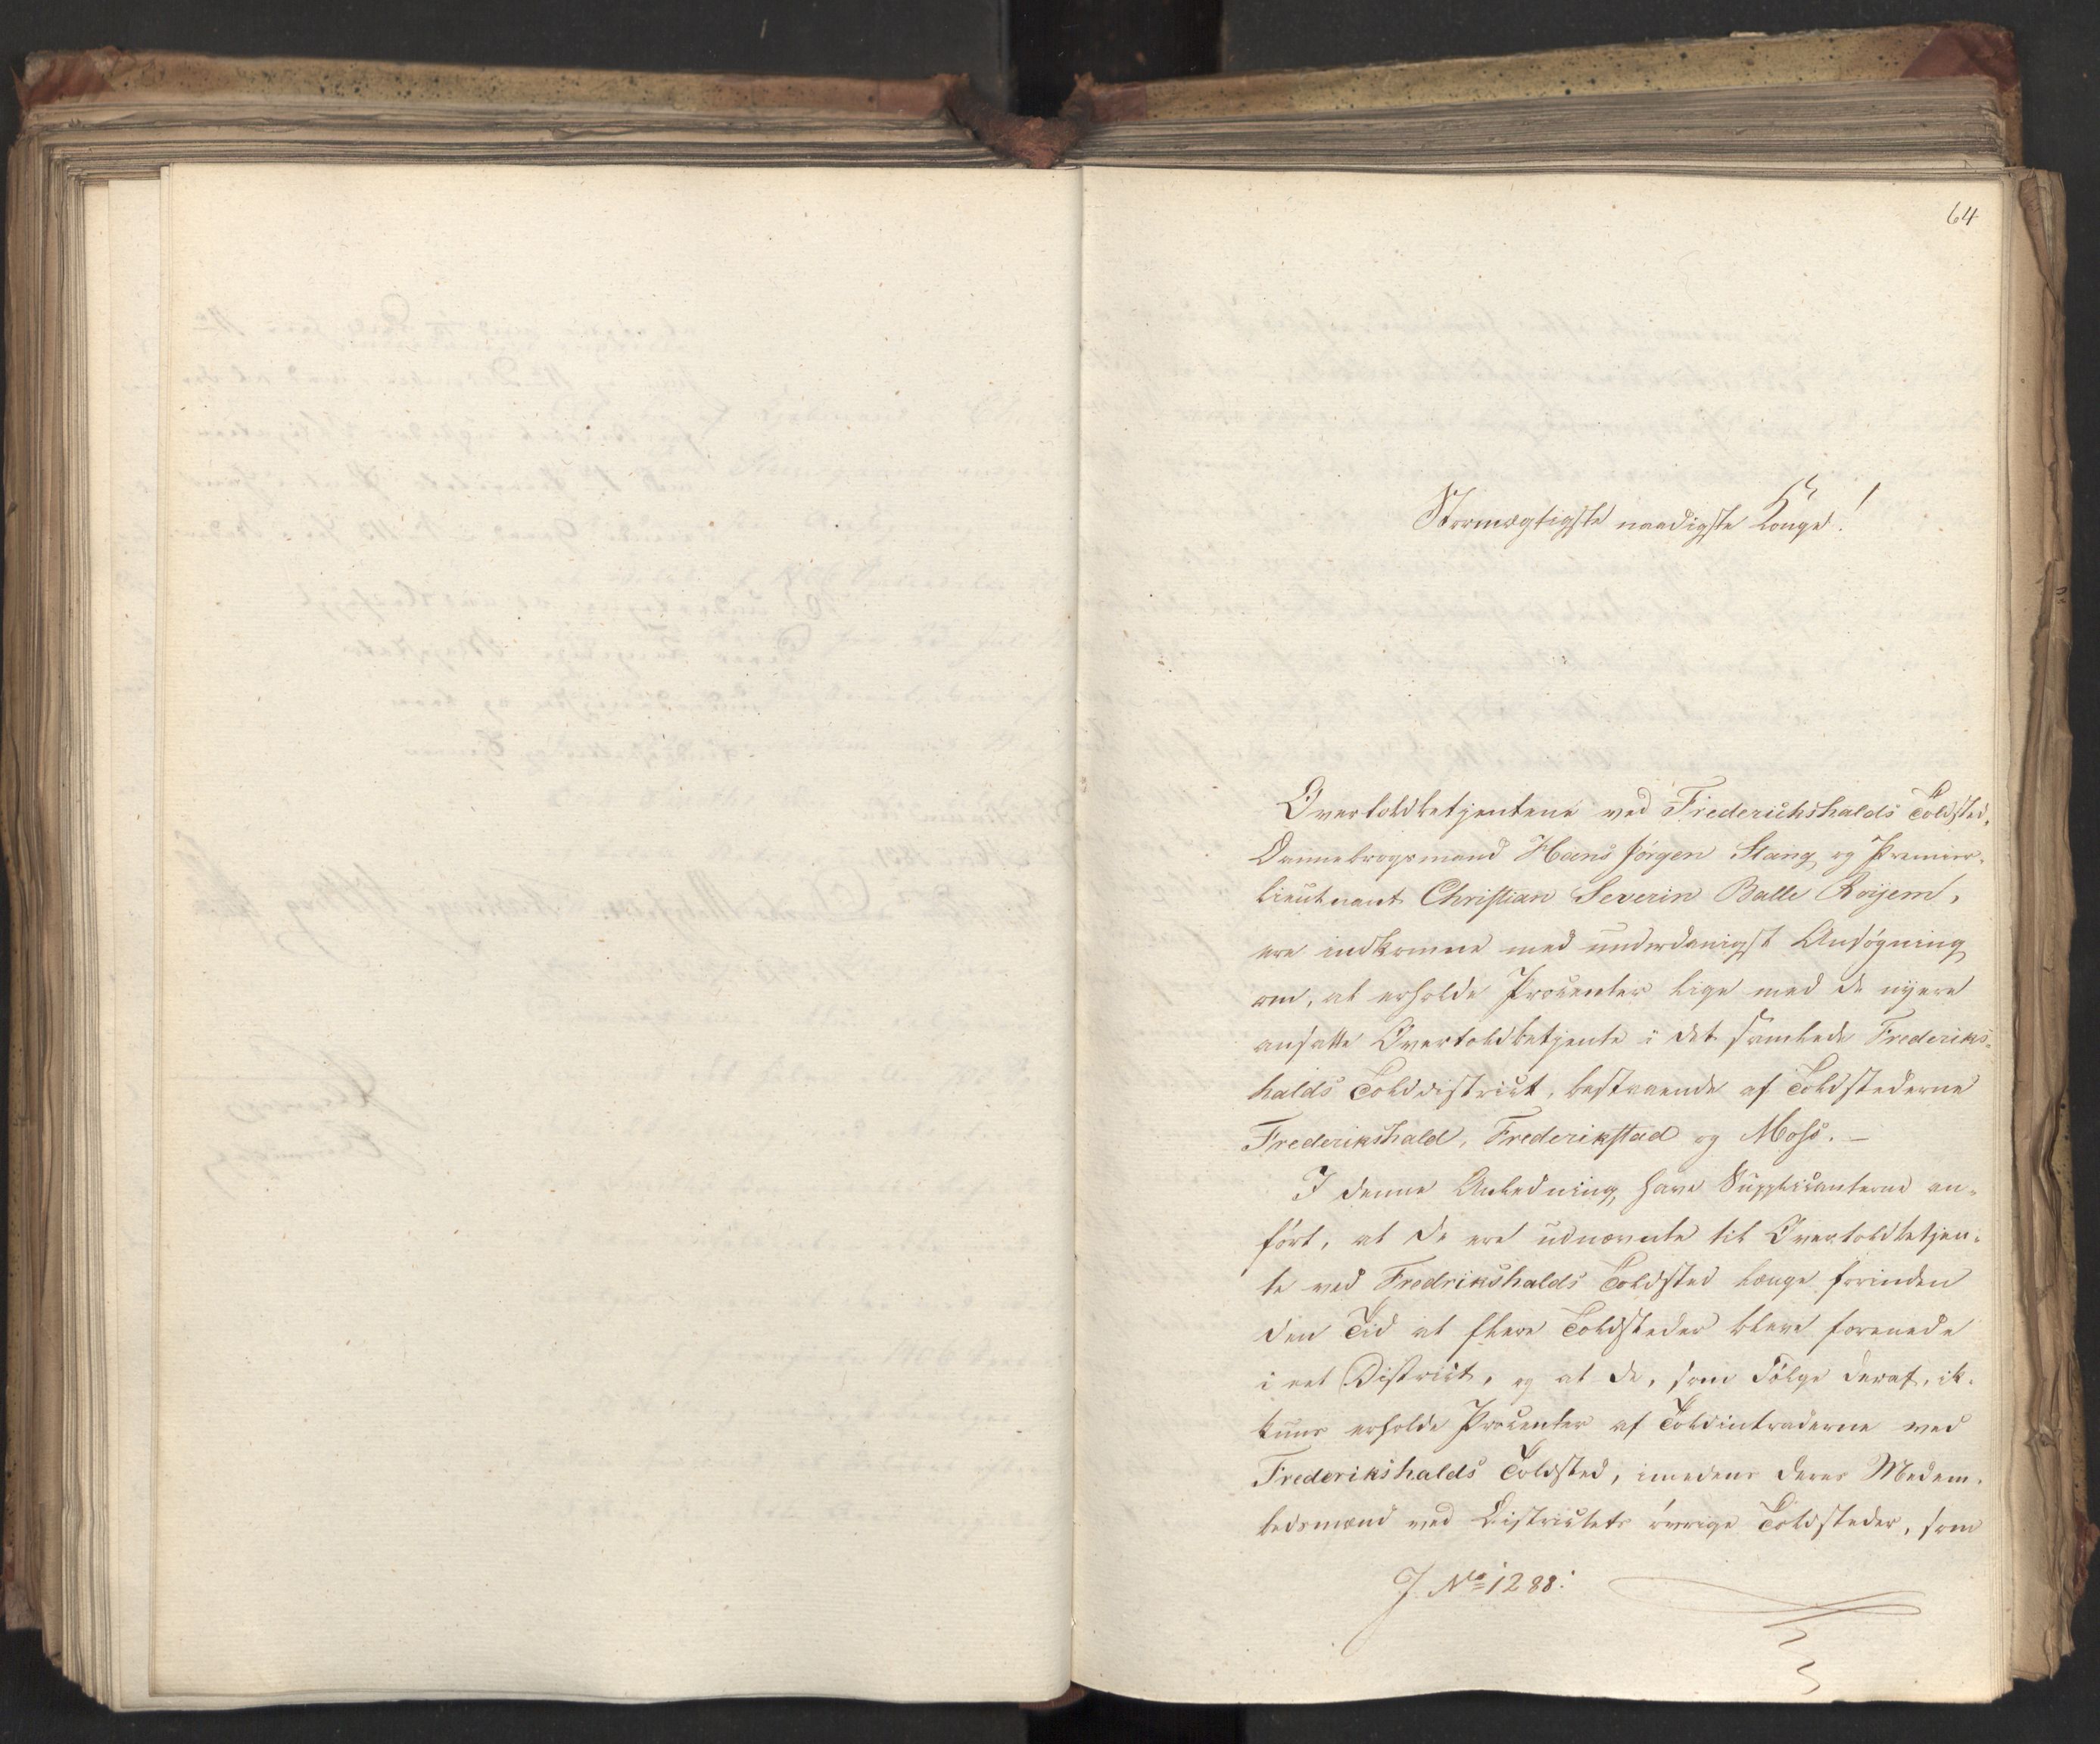 64
Stormægtigste naadigste Konge!
Overtoldbetjentene ved Frederichshalds Toldsted,
Dannebrogsmand Hans Jørgen Stang og Premier-
lieutnant Christian Severin Balle Roijem,
ere indkomne med underdanigst Ansøgning
om, at erholde Procenter lige med de nyere
ansatte Overtoldbetjente i det samlede Frederiks-
halds Tolddistrict, bestaaende af Toldstederne
Frederikshald, Frederikstad og Moss. —
I denne Anledning, have Supplicanterne an-
ført, at de ere udnævnte til Overtoldbetjen-
te ved Fredrikshalds Toldsted længe forinden
den Tid at flere Toldsteder bleve forenede
i eet District, og at de, som Følge deraf, ik-
kuns erholde Procenter af Toldintraderne ved
Frederikshalds Toldsted, imedens deres Medem-
bedsmænd ved Districtets øvrige Toldsteder, som
J. No 1288.